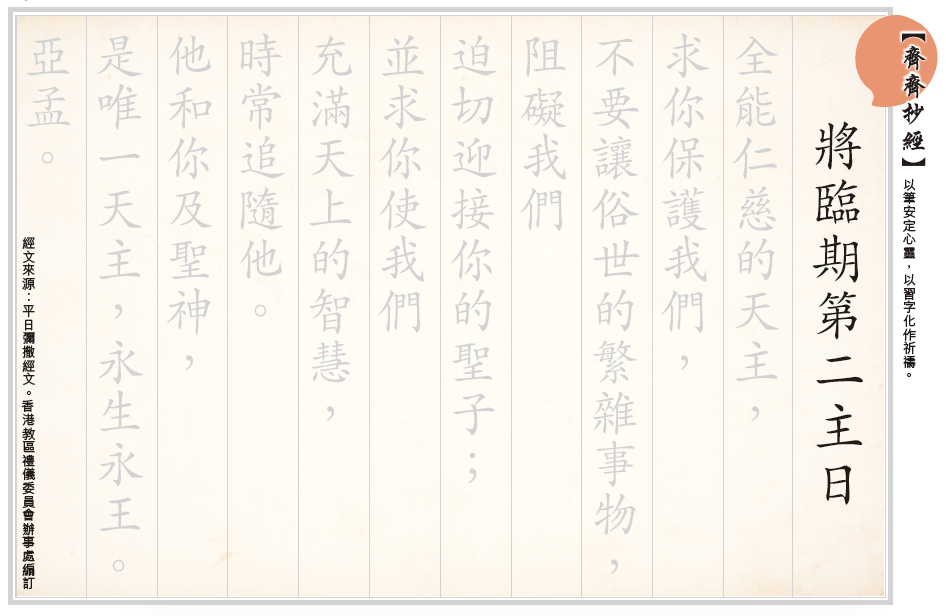 【齊齊抄經】以筆安定心靈，以習字化作祈禱。
將臨期第二主日
全能仁慈的天主，
求你保護我們，
不要讓俗世的繁雜事物，
阻礙我們
迫切迎接你的聖子；
並求你使我們
充滿天上的智慧，
時常追隨他。
他和你及聖神，
是唯一天主，永生永王。
亞孟。
經文來源：平日彌撒經文。香港教區禮儀委員會辦事處編訂